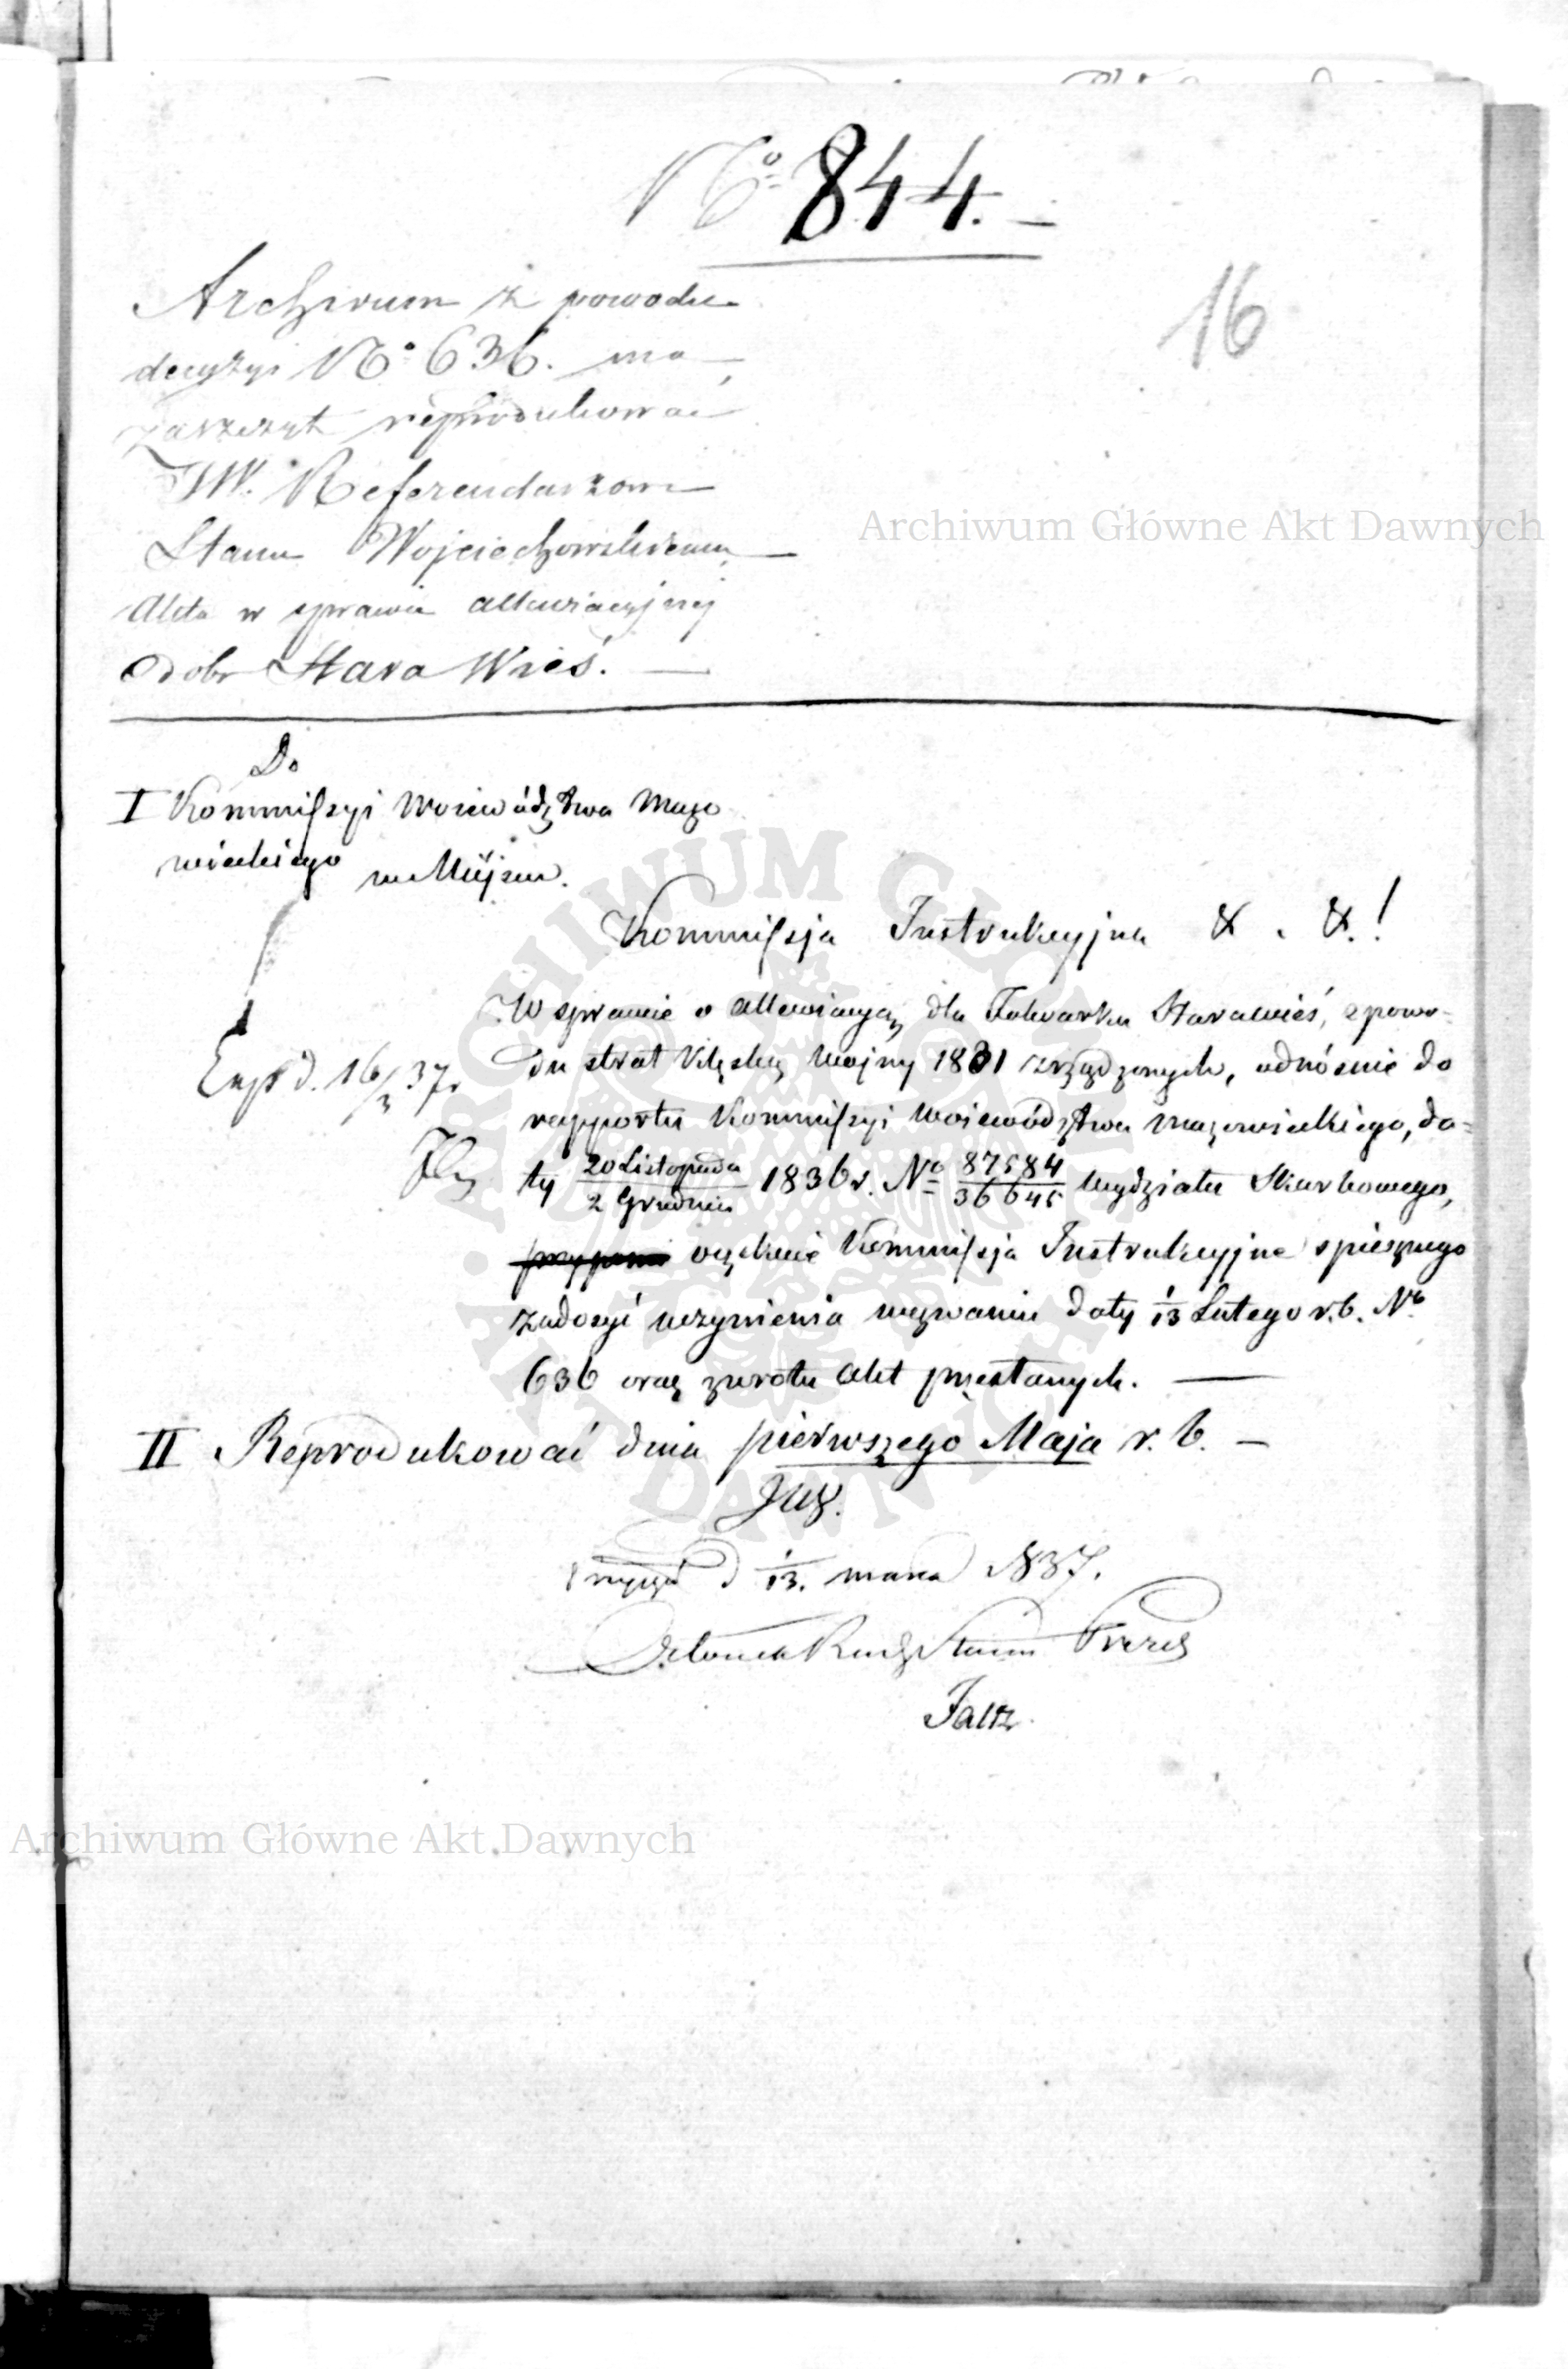 No 844. —
16
Archiwum z powodu
decyzyi No 636. ma
zaszczyt reprodukować
JW. Referendarzowi
Stanu Wojciechowskiemu —
Akta w sprawie allewiacyjnej
dobr Stara Wieś. —
Archiwum Główne Akt Dawnych
Do
I Kommissyi Województwa Mazo
wieckiego w Miejscu.
Kommissja Instrukcyjna & . &.!
W sprawie o allewiacyą dla Folwarku Starawieś, z powo=
du strat klęską wojny 1831 zrządzonych, odnośnie do
Exp d. 16/3 37.
rapportu Kommissyi Województwa Mazowieckiego, da=
ty 20 Listopada / 2 Grudnia 1836 r. No 87584 / 36645 Wydziału Skarbowego,
oczekuie Kommissja Instrukcyjna spiesznego
zadosyć uczynienia wezwaniu daty 1/13 Lutego r. b. No
636 oraz zwrotu akt przesłanych. —
II Reprodukować dnia pierwszego Maja r. b. —
d 1/13. marca 1837.
Członek Rady Stanu Prezes
Faltz.
Archiwum Główne Akt Dawnych
ARCHIWUM GŁÓWNE AKT DAWNYCH